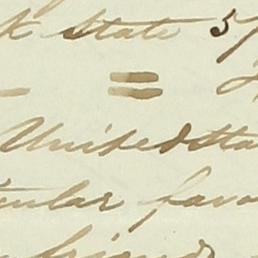 k State 57
=
United Sta
icular favo
friend